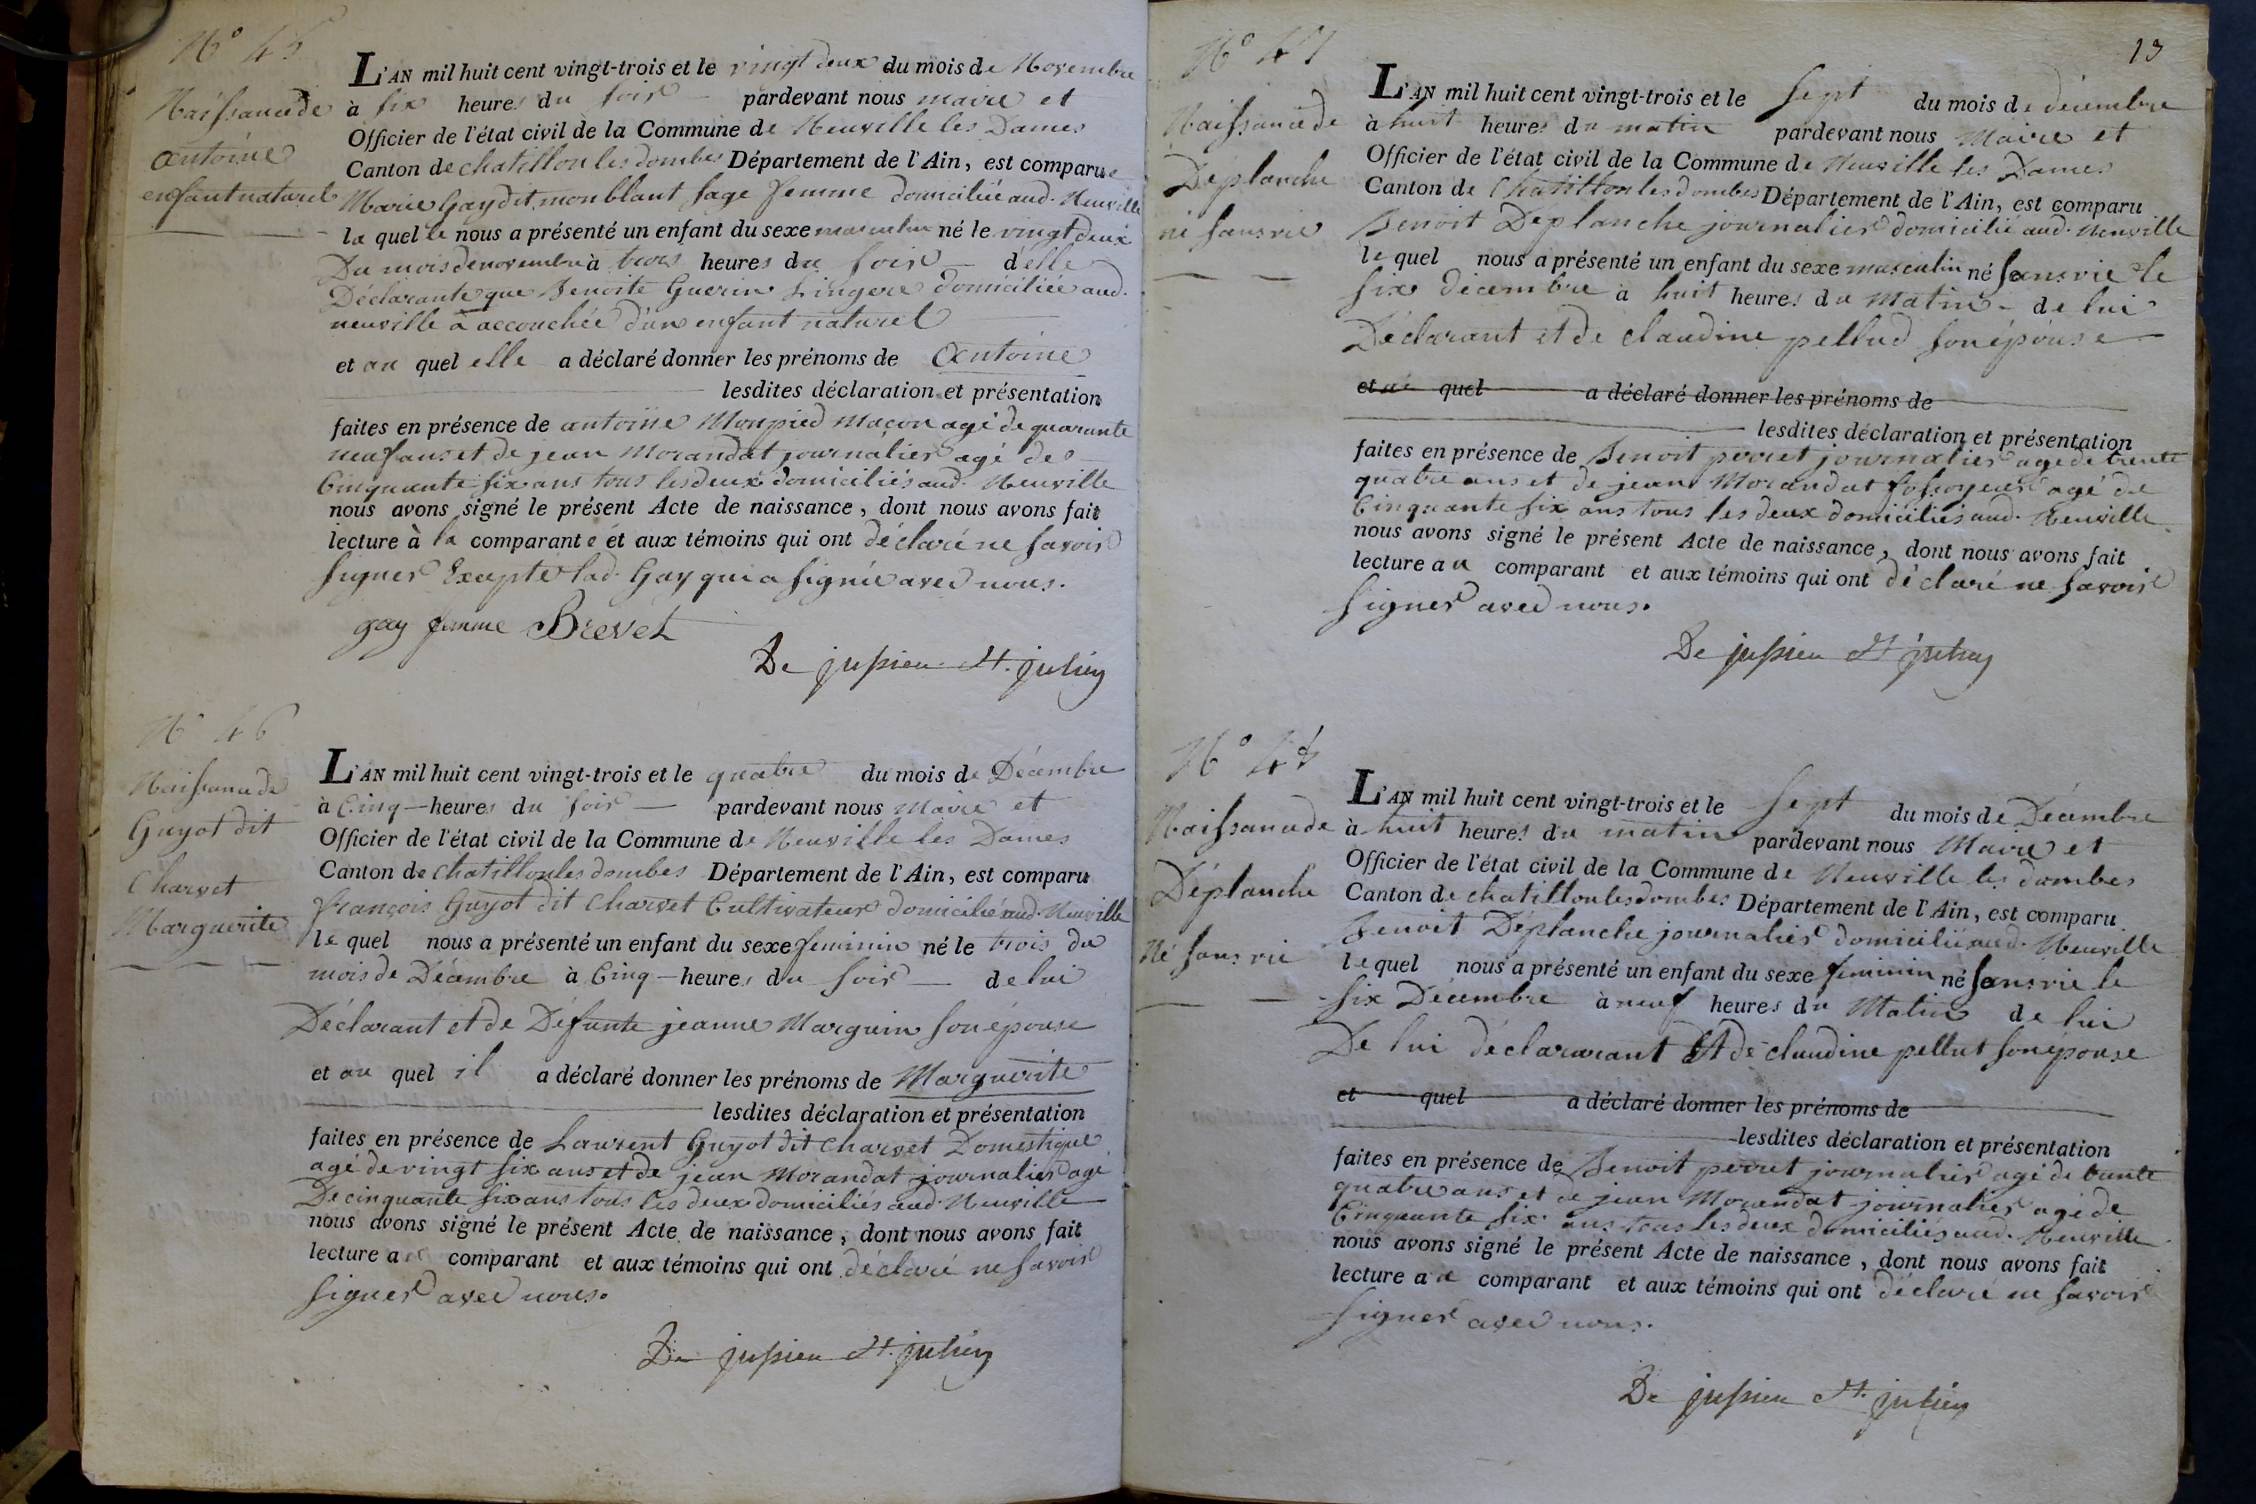 N° 45
Naissance de
Antoine
enfant naturel
L'AN mil huit cent vingt-trois et le vingt deux du mois de Novembre
à six heures du soir pardevant nous maire et
Officier de l'état civil de la Commune de Neuville les Dames
Canton de chatillon les dombes Département de l'Ain, est comparue
Marie Gay dit monblant sage femme domiciliée aud. Neuville
la quelle nous a présenté un enfant du sexe masculin né le vingt deux
Du mois de novembre à trois heures du soir d'elle
Déclarante que Benoite Guerin Lingere domiciliée aud.
neuville à accouchée d'un enfant naturel
et au quel elle a déclaré donner les prénoms de Antoine
lesdites déclaration et présentation
faites en présence de antoine Monpied Maçon agé de quarante
neuf ans et de jean Morandat journalier agé de
Cinquante six ans tous les deux domiciliés aud. Neuville
nous avons signé le présent Acte de naissance, dont nous avons fait
lecture à la comparante et aux témoins qui ont déclaré ne savoir
signer Excepte lad. Gay qui a signée avec nous.
gay femme Brevet
De jussieu St. julien
N° 46
Naissance de
Guyot dit
Charvet
Marguerite
L'AN mil huit cent vingt-trois et le quatre du mois de Décembre
à Cinq heures du soir pardevant nous Maire et
Officier de l'état civil de la Commune de Neuville les Dames
Canton de chatillon les dombes Département de l'Ain, est comparu
françois Guyot dit Charvet Cultivateur domicilié aud. Neuville
le quel nous a présenté un enfant du sexe feminin né le trois du
mois de Décembre à Cinq heures du soir de lui
Déclarant et de Défunte jeanne Marguin son épouse
et au quel il a déclaré donner les prénoms de Marguerite
lesdites déclaration et présentation
faites en présence de Laurent Guyot dit Charvet Domestique
agé de vingt six ans et de jean Morandat journalier agé
De cinquante six ans tous les deux domiciliés aud. Neuville
nous avons signé le présent Acte de naissance, dont nous avons fait
lecture au comparant et aux témoins qui ont déclaré ne savoir
signer avec nous.
De jussieu St. julien
13
N° 47
Naissance de
Déplanche
né sans vie
L'AN mil huit cent vingt-trois et le sept du mois de décembre
à huit heures du matin pardevant nous Maire et
Officier de l'état civil de la Commune de Neuville les Dames
Canton de Chatillon les dombes Département de l'Ain, est comparu
Benoit Déplanche journalier domicilié aud. Neuville
le quel nous a présenté un enfant du sexe masculin né sans vie le
six décembre à huit heures du Matin de lui
Déclarant et de claudine pellud son épouse
et au quel a déclaré donner les prénoms de
lesdites déclaration et présentation
faites en présence de Benoit perret journalier agé de trente
quatre ans et de jean Morandat fossoyeur agé de
Cinquante six ans tous les deux domiciliés aud. Neuville
nous avons signé le présent Acte de naissance, dont nous avons fait
lecture au comparant et aux témoins qui ont déclaré ne savoir
signer avec nous.
De jussieu St julien
N° 48
Naissance de
Déplanche
Né sans vie
L'AN mil huit cent vingt-trois et le sept du mois de Décembre
à huit heures du matin pardevant nous Maire et
Officier de l'état civil de la Commune de Neuville les dombes
Canton de chatillon les dombes Département de l'Ain, est comparu
Benoit Déplanche journalier domicilié aud. Neuville
le quel nous a présenté un enfant du sexe feminin né sans vie le
six Décembre à neuf heures du Matin de lui
De lui déclararant Et de claudine pellut son épouse
et quel a déclaré donner les prénoms de
lesdites déclaration et présentation
faites en présence de Benoit perret journalier agé de trente
quatre ans et de jean Morandat journalier agé de
Cinquante six ans tous les deux domiciliés aud. Neuville
nous avons signé le présent Acte de naissance, dont nous avons fait
lecture au comparant et aux témoins qui ont déclaré ne savoir
signer avec nous.
De jussieu St. julien